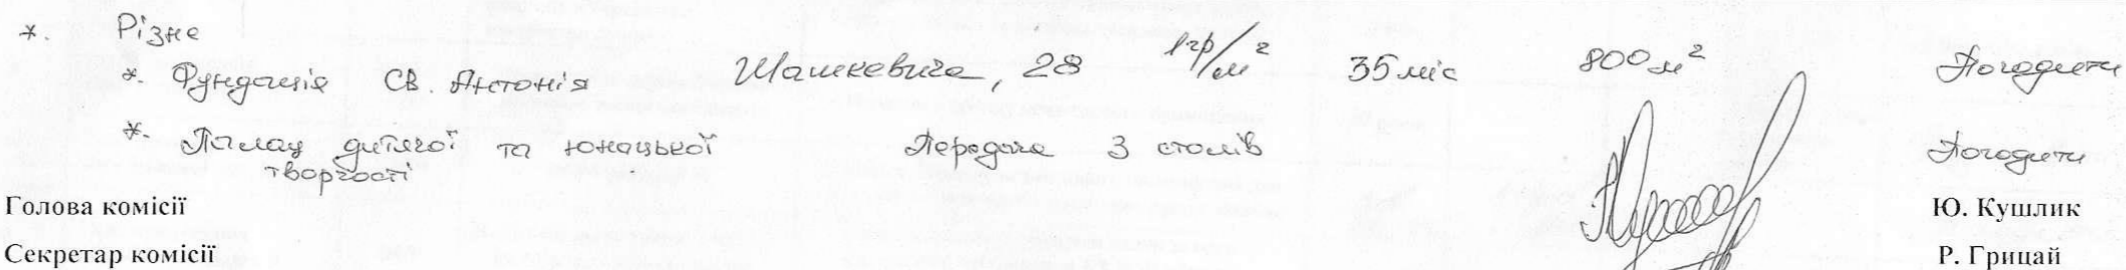 *. Різне
*. Фундація Св. Антонія Шашкевича, 28 1гр/м² 35 міс 800 м² Погодити
*. Палац дитячої та юнацької Передача 3 столів Погодити
творчості
Голова комісії Ю. Кушлик
Секретар комісії Р. Грицай